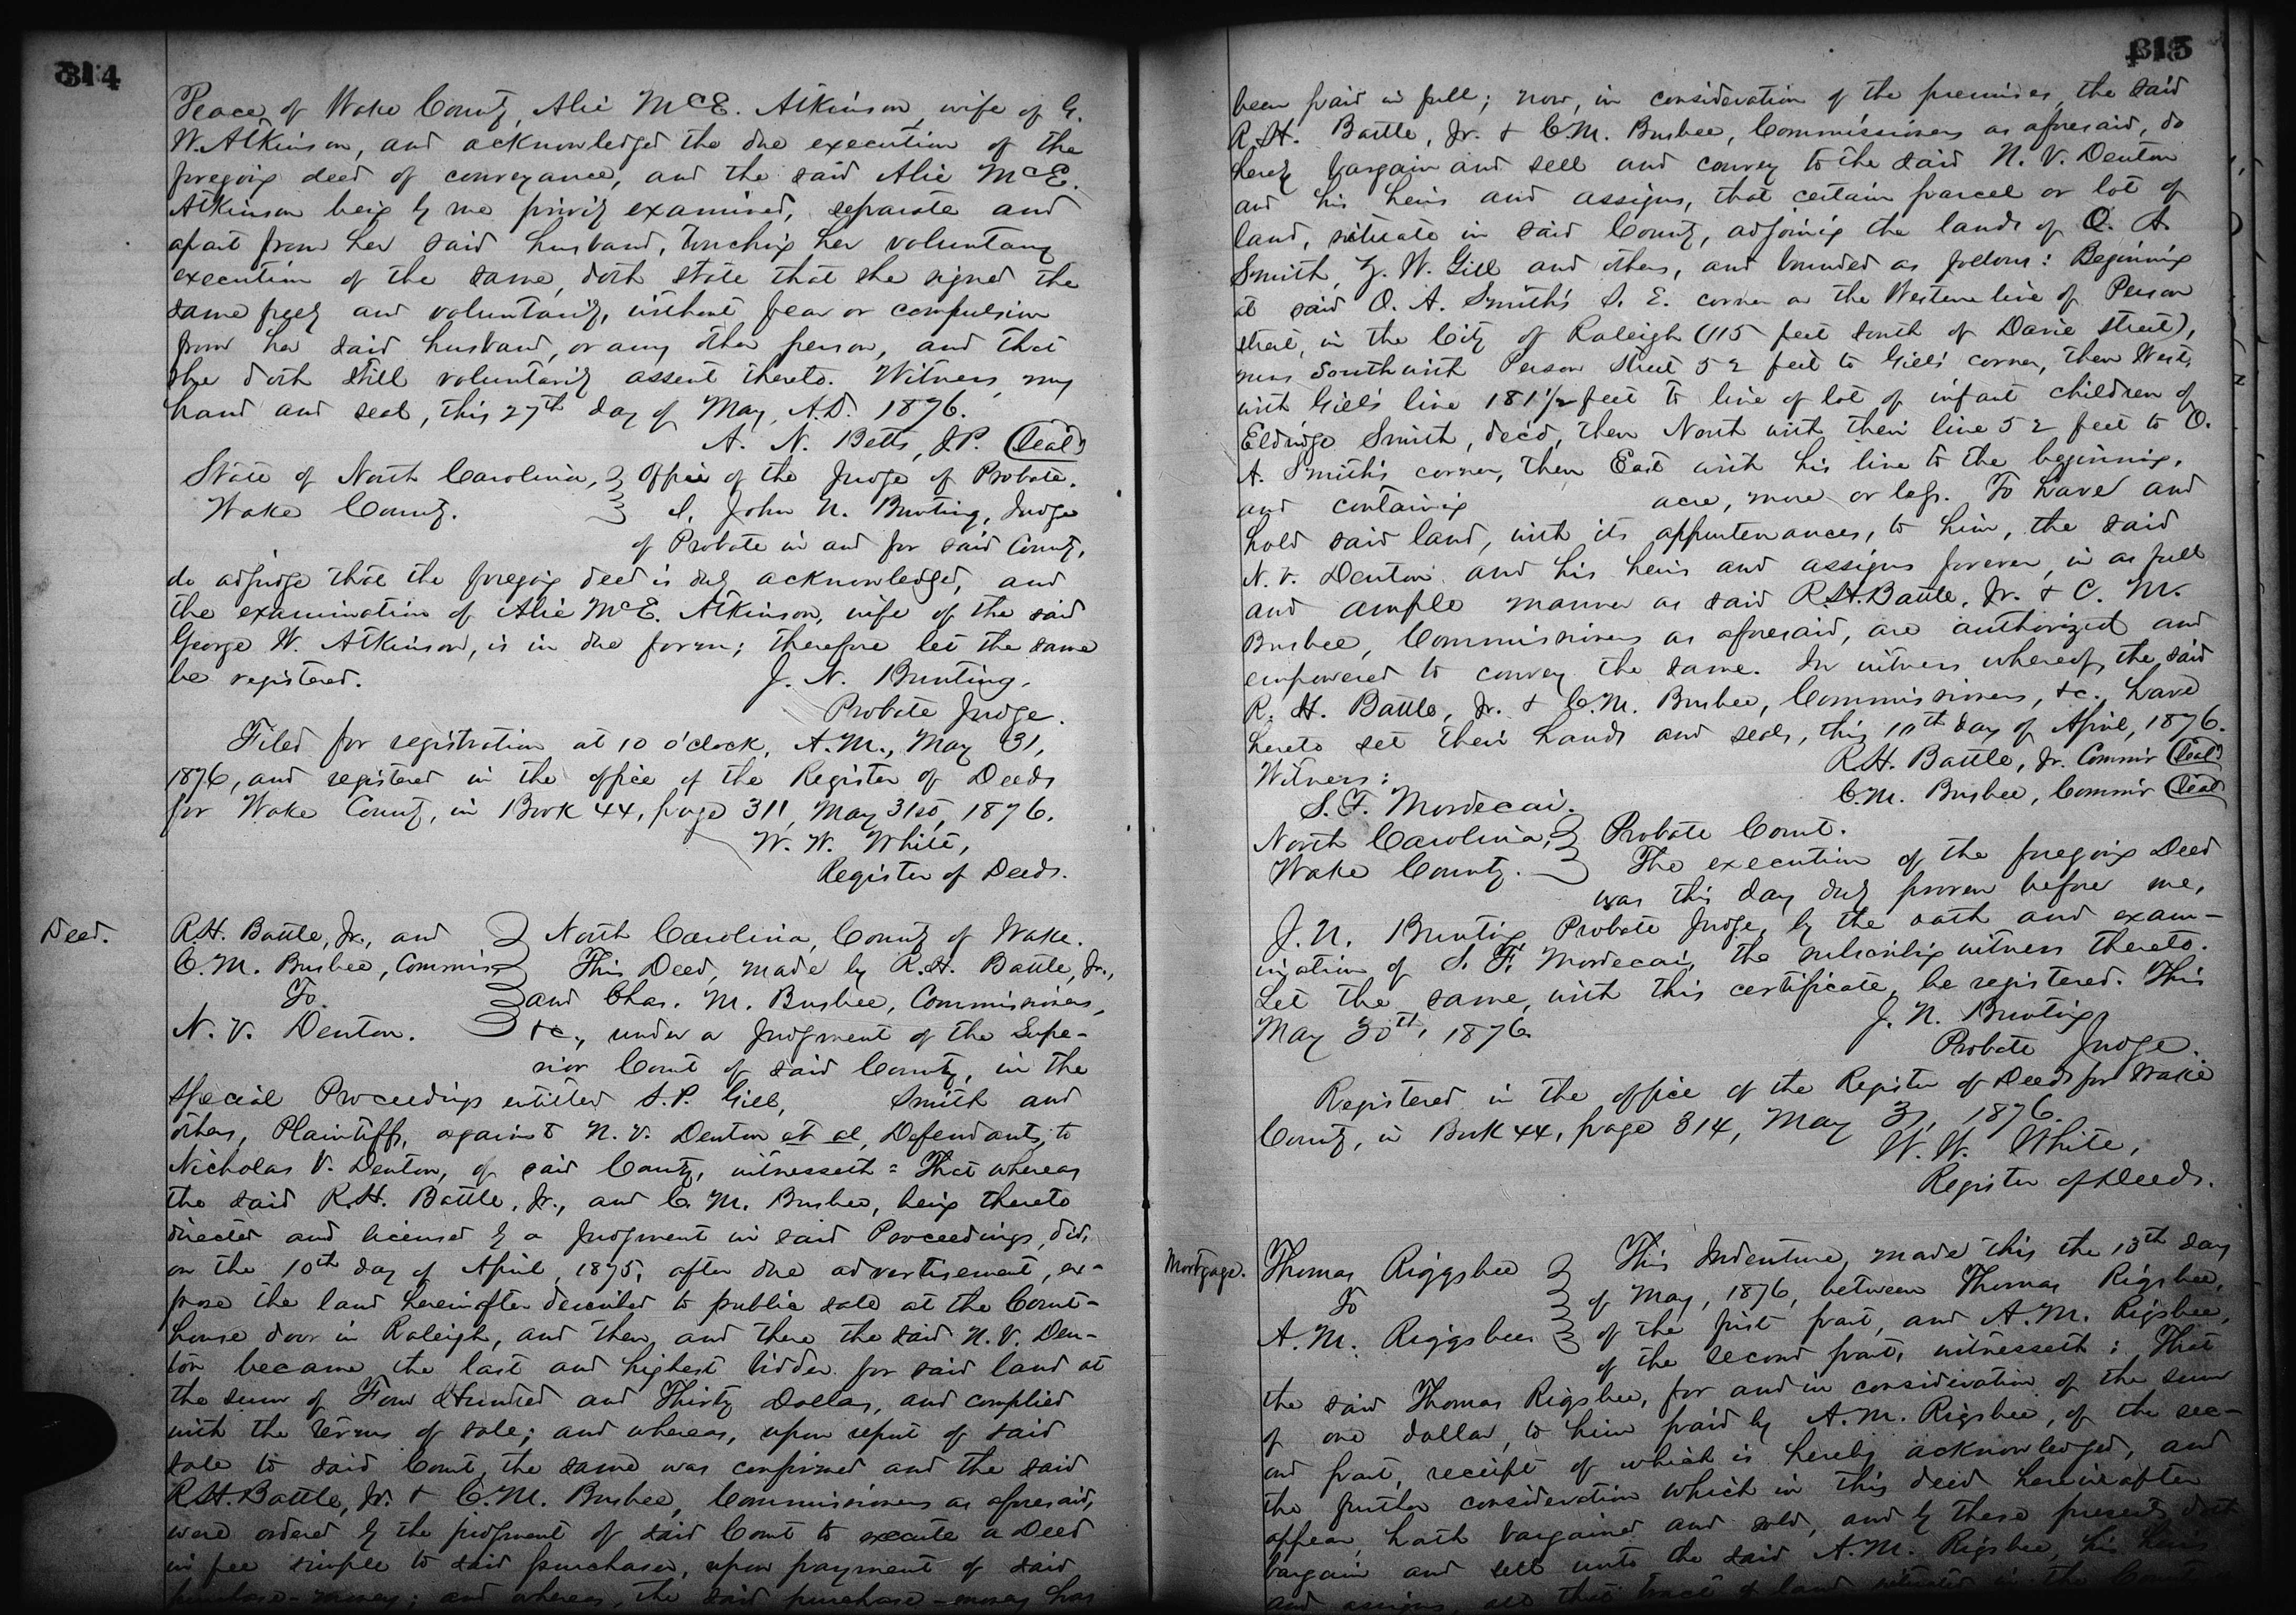 314
Peace, of Wake County, Alie McE. Atkinson, wife of G.
W. Atkinson, and acknowledged the due execution of the
foregoing deed of conveyance, and the said Alie McE.
Atkinson being by me privily examined, separate and
apart from her said husband, touching her voluntary
execution of the same, doth state that she signed the
same freely and voluntarily, without fear or compulsion
from her said husband, or any other person, and that
she doth still voluntarily assent thereto. Witness, my
hand and seal, this 27th day of May, A.D. 1876.
A. N. Betts, J.P. (Seal)
State of North Carolina, Office of the Judge of Probate.
Wake County. I, John N. Bunting, Judge
of Probate in and for said County,
do adjudge that the foregoing deed is duly acknowledged, and
the examination of Alie McE. Atkinson, wife of the said
George W. Atkinson, is in due form; therefore let the same
be registered. J. N. Bunting,
Probate Judge.
Filed for registration at 10 o'clock, A.M., May 31,
1876, and registered in the office of the Register of Deeds
for Wake County, in Book 44, page 311, May 31st, 1876.
W. W. White,
Register of Deeds.
Deed.
R.H. Battle, Jr., and North Carolina, County of Wake.
C. M. Busbee, Commis This Deed, made by R.H. Battle, Jr.,
To and Chas. M. Busbee, Commissioners,
N. V. Denton. &c., under a Judgment of the Supe-
rior Court of said County, in the
Special Proceedings entitled S.P. Gill, Smith and
others, Plaintiffs, against N.V. Denton et al, Defendants, to
Nicholas V. Denton, of said County, witnesseth: That whereas
the said R.H. Battle, Jr., and C. M. Busbee, being thereto
directed and licensed by a Judgment in said Proceedings, did,
on the 10th day of April, 1875, after due advertisement, ex-
pose the land hereinafter described to public sale at the Court-
house door in Raleigh, and then and there the said N. V. Den-
ton became the last and highest bidder for said land at
the sum of Four Hundred and Thirty Dollars, and complied
with the terms of sale; and whereas, upon report of said
sale to said Court, the same was confirmed and the said
R.H. Battle, Jr. & C. M. Busbee, Commissioners as aforesaid,
were ordered by the judgment of said Court to execute a Deed
in fee simple to said purchaser, upon payment of said
purchase-money; and whereas, the said purchase-money has
315
been paid in full; now, in consideration of the premises, the said
R.H. Battle, Jr. & C.M. Busbee, Commissioners as aforesaid, do
hereby bargain and sell and convey to the said N. V. Denton
and his heirs and assigns, that certain parcel or lot of
land, situate in said County, adjoining the lands of O. A.
Smith, Z. W. Gill and others, and bounded as follows: Beginning
at said O. A. Smith's S. E. corner on the Western line of Person
street, in the City of Raleigh (115 feet south of Davie street),
runs South with Person Street 52 feet to Gill's corner, then West
with Gill's line 181 1/2 feet to line of lot of infant children of
Eldridge Smith, dec'd, then North with their line 52 feet to O.
A. Smith's corner, then East with his line to the beginning,
and containing acre, more or less. To have and
hold said land, with its appurtenances, to him, the said
N. V. Denton and his heirs and assigns forever, in as full
and ample manner as said R.H. Battle, Jr. & C. M.
Busbee, Commissioners as aforesaid, are authorized and
empowered to convey the same. In witness whereof, the said
R. H. Battle, Jr. & C.M. Busbee, Commissioners, &c., have
hereto set their hands and seals, this 10th day of April, 1876.
R.H. Battle, Jr. Commr (Seal)
Witness:
C.M. Busbee, Commr (Seal)
S. F. Mordecai.
North Carolina, Probate Court.
Wake County. The execution of the foregoing Deed
was this day duly proven before me,
J. N. Bunting Probate Judge, by the oath and exam-
ination of S. F. Mordecai, the subscribing witness thereto.
Let the same, with this certificate, be registered. This
May 30th, 1876. J. N. Bunting,
Probate Judge.
Registered in the office of the Register of Deeds for Wake
County, in Book 44, page 314, May 31, 1876.
W. W. White,
Register of Deeds.
Mortgage.
Thomas Riggsbee This Indenture, made this the 13th day
To of May, 1876, between Thomas Rigsbee,
A. M. Riggsbee of the first part, and A. M. Rigsbee,
of the second part, witnesseth: That
the said Thomas Rigsbee, for and in consideration of the sum
of one dollar, to him paid by A. M. Rigsbee, of the sec-
ond part, receipt of which is hereby acknowledged, and
the further consideration which in this deed hereinafter
appear, hath bargained and sold, and by these presents doth
bargain and sell unto the said A. M. Rigsbee, his heirs
and assigns, all that tract of land situated in the County